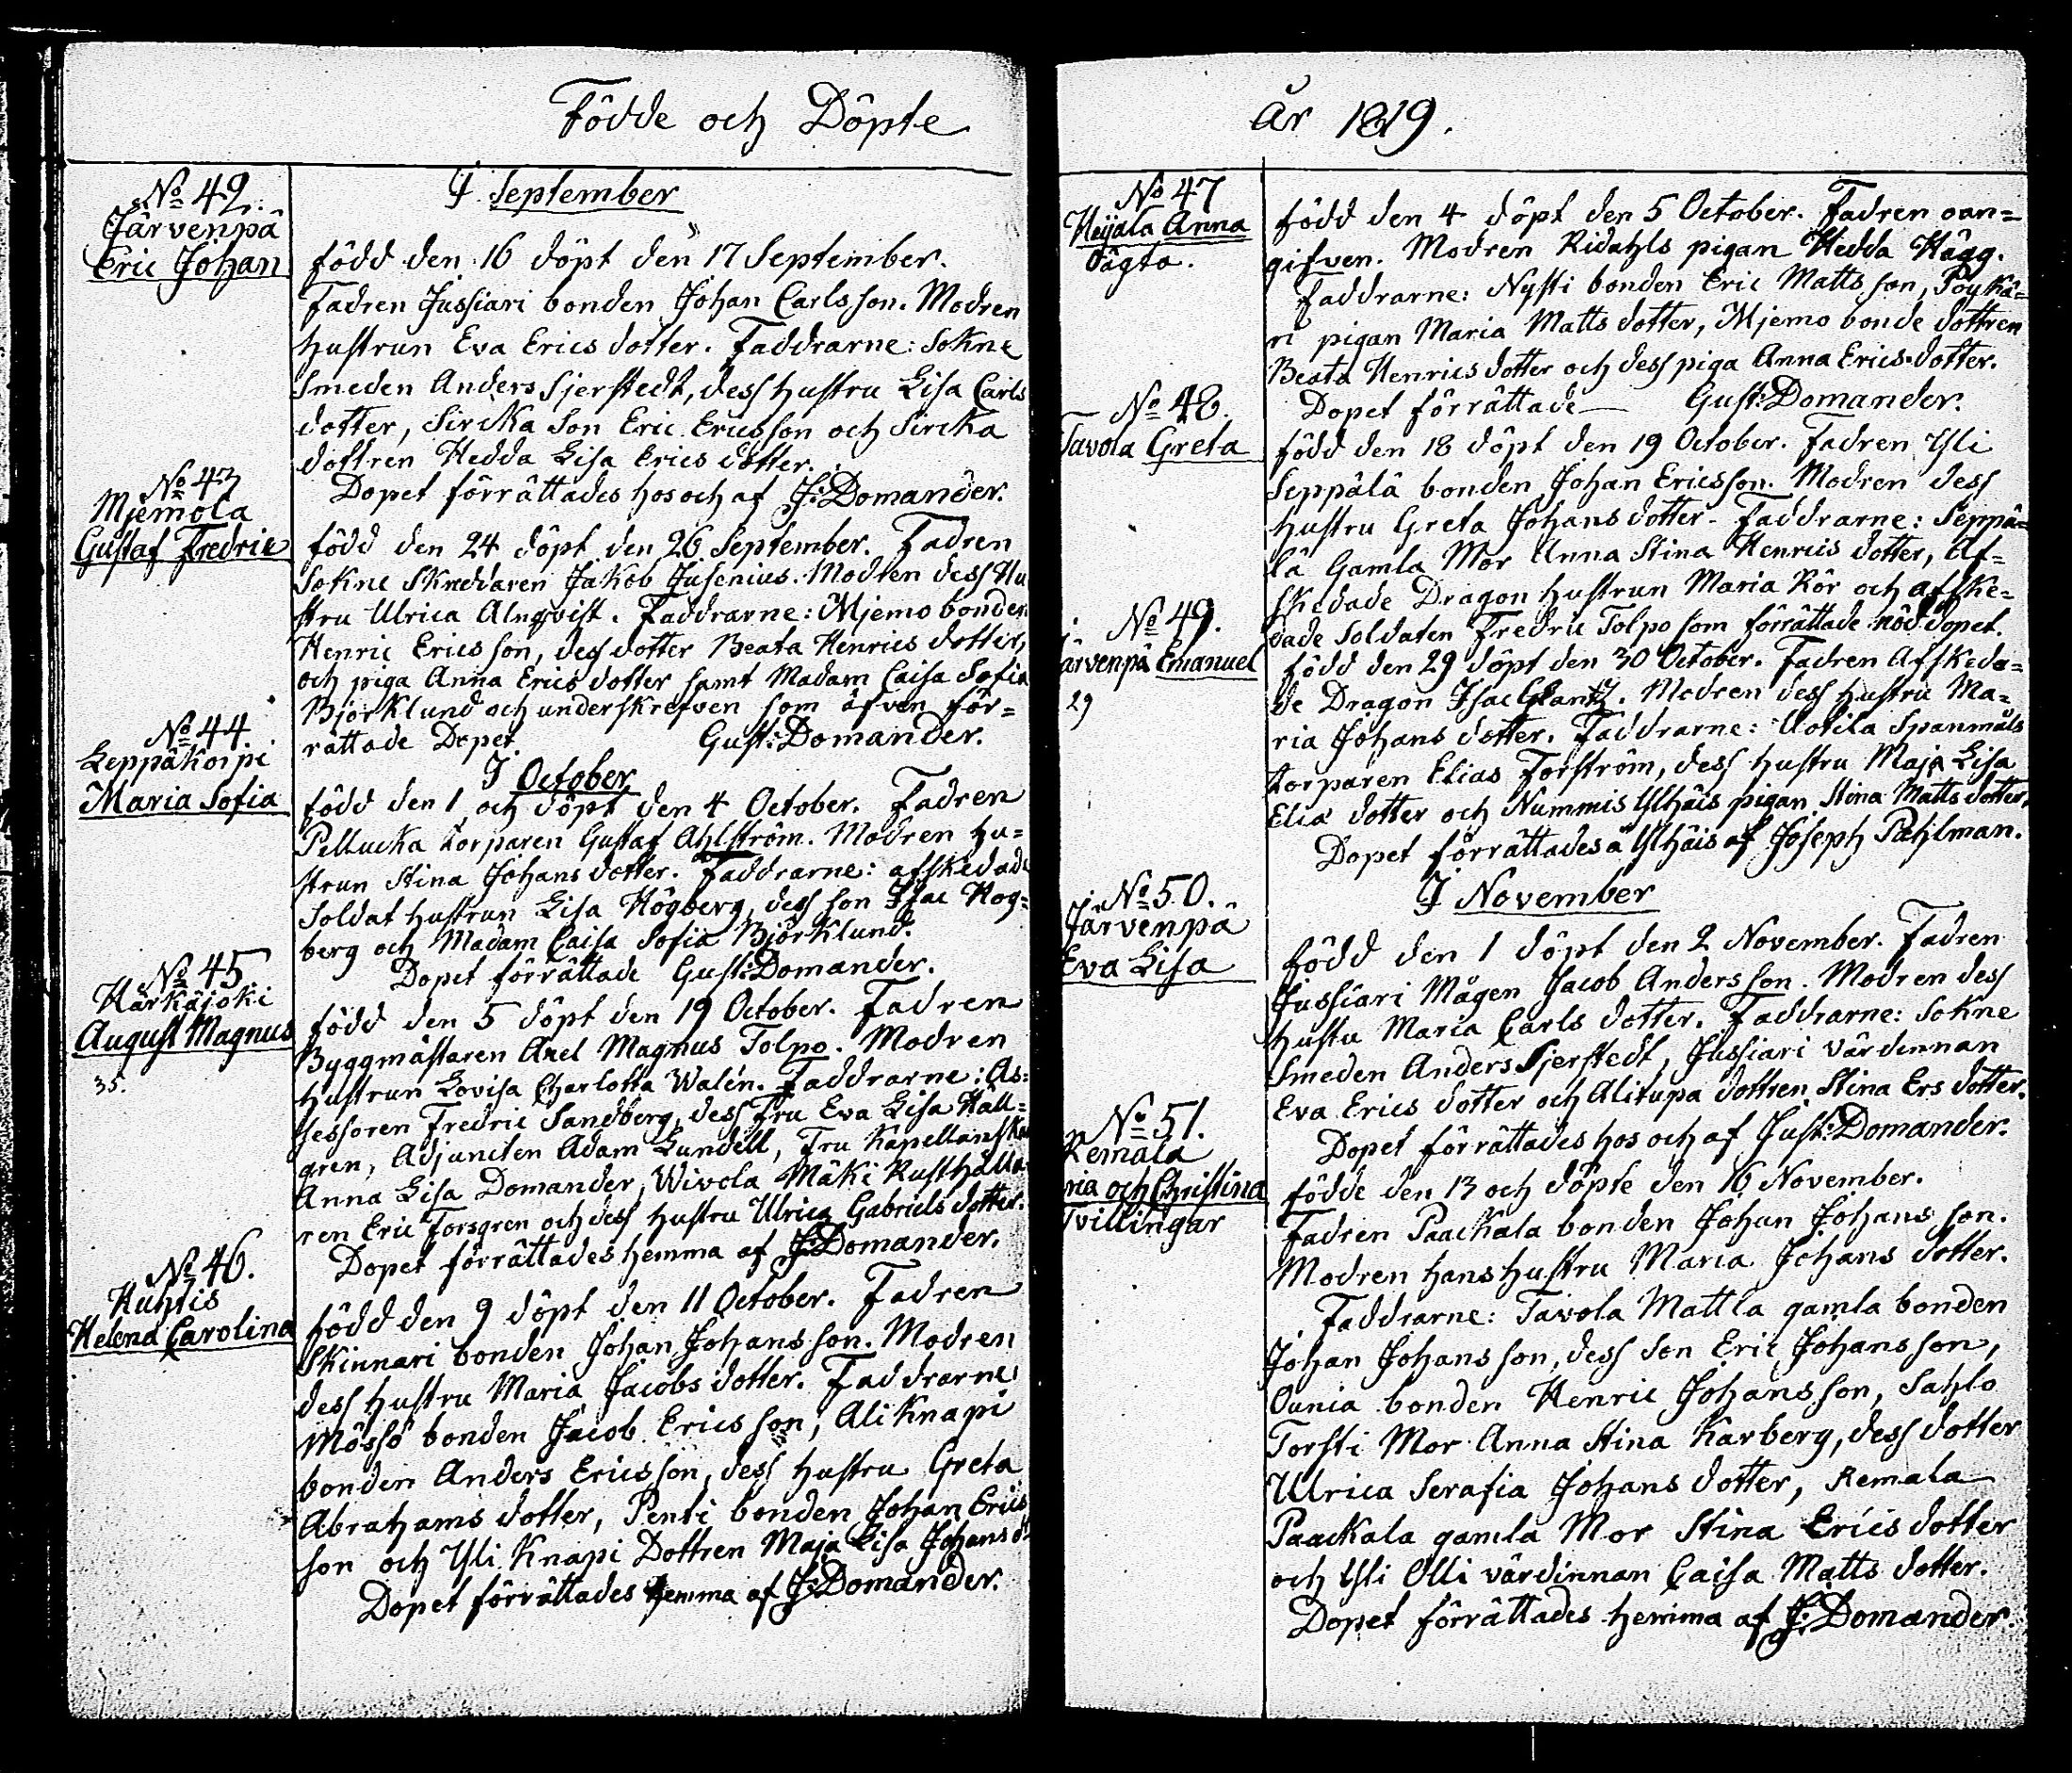 Födde och Döpte
No 42.
Järvenpä
Eric Johan
I September
född den 16 döpt den 17 September.
Fadren Jussiari bonden Johan Carlsson. Modren
hustrun Eva Erics dotter. Faddrarne: Sokne
Smeden Anders Sjerstedt, dess hustru Lisa Carls
dotter, Sircka Son Eric Ericsson och Sircka
dottren Hedda Lisa Erics dotter.
Dopet förrättades hos och af J: Domander.
No 43
Mjemola
Gustaf Fredric
född den 24 döpt den 26 September. Fadren
Sokne Skreddaren Jakob Jusenius. Modren dess Hu
stru Ulrica Almqvist. Faddrarne: Mjemo bonden
Henric Ericsson, des dotter Beata Henrics dotter,
och piga Anna Erics dotter samt Madam Caisa Sofia
Björklund och underskrefven som äfven för=
rättade Dopet. Gust: Domander.
No 44
Leppäkorpi
Maria Sofia
I October
född den 1 och döpt den 4 October. Fadren
Pellucka torparen Gustaf Ahlström. Modren hu=
strun Stina Johans dotter. Faddrarne: afskedade
Soldat hustrun Lisa Högberg, dess son Isac Hög=
berg och Madam Caisa Sofia Björklund.
Dopet förrättade Gust: Domander.
No 45
Härkäjoki
August Magnus
35.
född den 5 döpt den 19 October. Fadren
Byggmästaren Axel Magnus Tolpo. Modren
Hustrun Lovisa Charlotta Walén. Faddrarne: As=
sessoren Fredric Sandberg, dess Fru Eva Lisa Häll=
gren, Adjuncten Adam Lundell, Fru Kapellanskan
Anna Lisa Domander, Wivola Mäki Rusthålla
ren Eric Forsgren och dess hustru Ulrica Gabriels dotter.
Dopet förrättades hemma af J: Domander.
No 46.
Huhtis
Helena Carolina
född den 9 döpt den 11 October. Fadren
Skinnari bonden Johan Johansson. Modren
dess hustru Maria Jacobs dotter. Faddrarne
Mössö bonden Jacob Ericsson, Ali Knapi
bonden Anders Ericsson, dess hustru Greta
Abrahams dotter, Penti bonden Johan Erics
son och Yli Knapi Dottren Maja Lisa Johans dr
Dopet förrättades hemma af J: Domander.
År 1819.
No 47
Heijala Anna
Oägta.
född den 4 döpt den 5 October. Fadren oan=
gifven. Modren Ridahls pigan Hedda Hägg.
Faddrarne: Nysti bonden Eric Mattsson, Poykä=
ri pigan Maria Matts dotter, Mjemo bonde dottren
Beata Henrics dotter och dess piga Anna Erics-dotter.
Dopet förrättade— Gust: Domander.
No 48.
Tavola Greta
född den 18 döpt den 19 October. Fadren Yli
Seppälä bonden Johan Ericsson. Modren dess
hustru Greta Johans dotter. Faddrarne: Seppä=
lä Gamla Mor Anna Stina Henrics dotter, Af=
skedade Dragon hustrun Maria Rör och afske=
dade Soldaten Fredric Tolpo som förrättade nöd dopet.
No 49.
ärvenpä Emanuel
29
född den 29 döpt den 30 October. Fadren Afskeda=
de Dragon Isac Glantz. Modren dess hustru Ma=
ria Johans dotter. Faddrarne: Uotila Spanmåls
torparen Elias Forström, dess hustru Maja Lisa
Elia dotter och Nummis Ylhäis pigan Stina Matts dotter.
Dopet förrättades å Ylhäis af Joseph Pahlman.
I November
No 50.
Järvenpä
Eva Lisa
född den 1 döpt den 2 November. Fadren
Jussiari Mågen Jacob Andersson. Modren dess
hustu Maria Carls dotter. Faddrarne: Sokne
Smeden Anders Sjerstedt, Jussiari värdinnan
Eva Erics dotter och Alitupa dottren Stina Ers dotter.
Dopet förrättades hos och af Just: Domander.
No 51.
Remala
ria och Christina
Tvillingar
födde den 13 och döpte den 16 November.
Fadren Paackala bonden Johan Johansson.
Modren hans hustru Maria Johans dotter.
Faddrarne: Tavola Mattla gamla bonden
Johan Johansson, dess Son Eric Johansson,
Ounia bonden Henric Johansson, Sahlo
Torsti Mor Anna Stina Karberg, dess dotter
Ulrica Serafia Johans dotter, Remala
Paackala gamla Mor Stina Erics dotter
och Yli Olli värdinnan Caisa Matts dotter.
Dopet förrättades hemma af J: Domander.